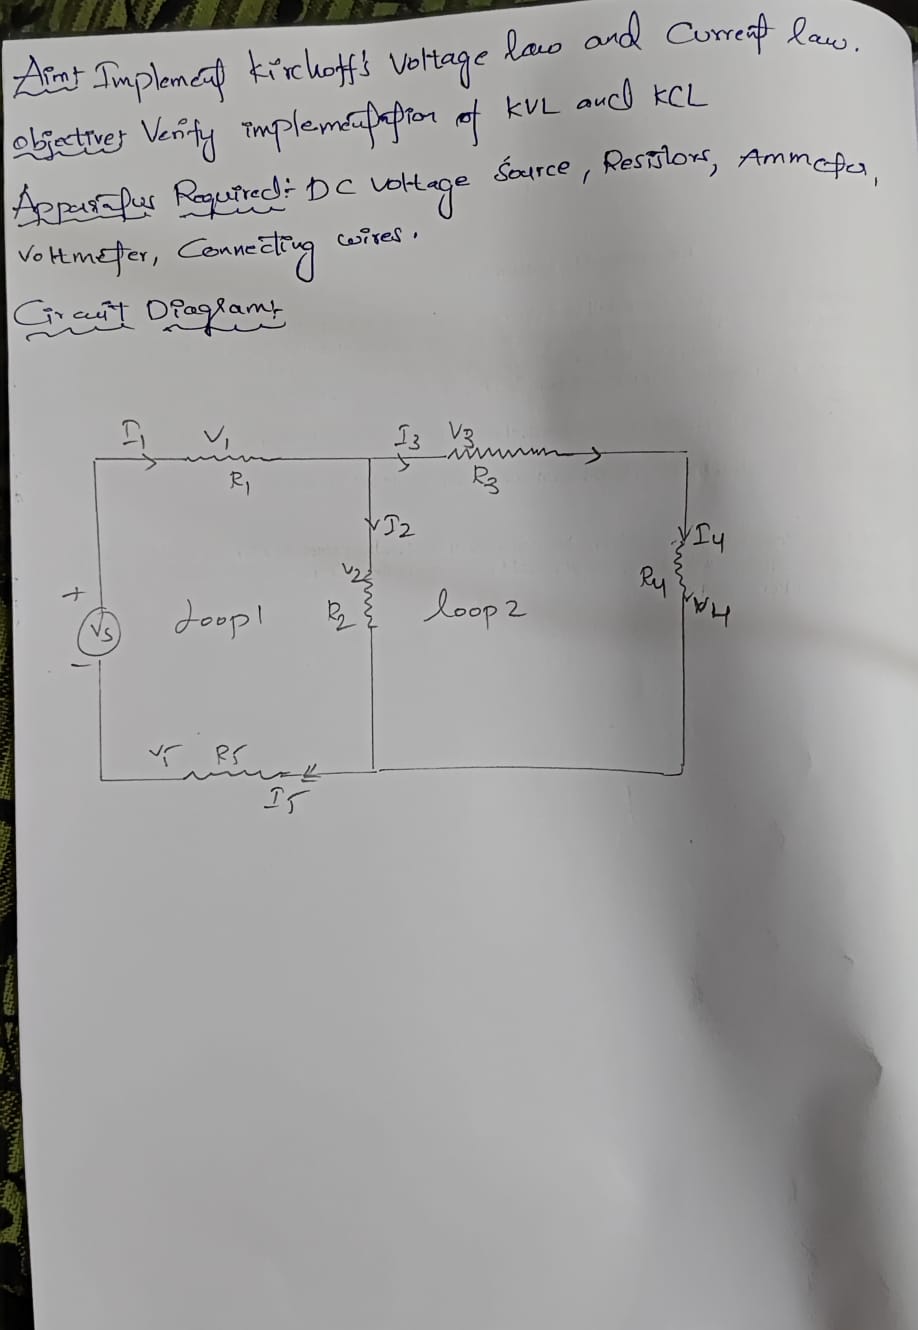 Aim:- Implement Kirchoff's Voltage law and Current law.
Objective:- Verify implementation of KVL and KCL
Apparatus Required:- DC Voltage Source, Resistors, Ammeter,
Voltmeter, Connecting wires.
Circuit Diagram:-
I1 V1 I3 V3
R1 R3
I2 I4
V2 R4
+ Vs - Loop1 R2 loop2 V4
V5 R5
I5